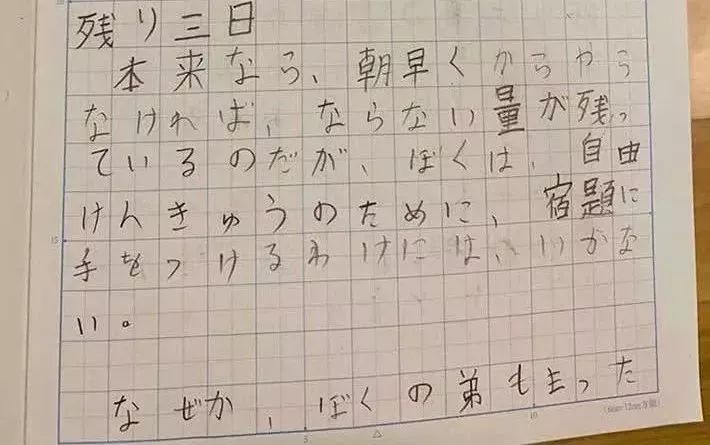 残り三日
本来なら、朝早くからやら
なければ、ならない量が残っ
ているのだが、ぼくは、自由
けんきゅうのために、宿題に
手をつけるわけには、いかな
い。
なぜか、ぼくの弟もまった
15
5
10
(6mm・12mm方眼)